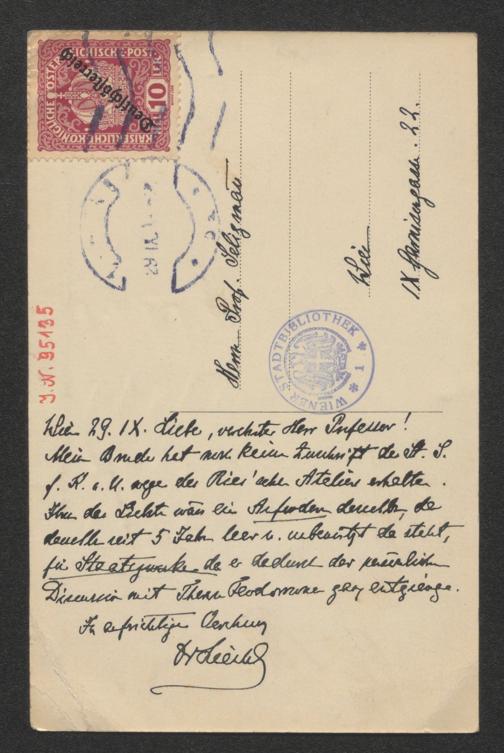 KAISERLICHE KÖNIGLICHE ÖSTERREICHISCHE POST
10
Deutschösterreich
29 IX
Herrn Prof. Seligman
Wien
IX Garnisongasse. 22.
WIENER STADTBIBLIOTHEK
J.N. 95195
Wien 29. IX. Lieber, verehrter Herr Professor!
Mein Bruder hat noch keine Zuschrift der St. S.
f. K. u. U. wegen des Ries'schen Ateliers erhalten.
Ihm das Liebste wäre ein Anfordern desselben, da
dasselbe seit 5 Jahren leer u. unbenützt da steht,
für Staatszwecke da er dadurch der persönlichen
Discussion mit Theresa Feodorowna ganz entgienge.
In aufrichtiger Verehrung